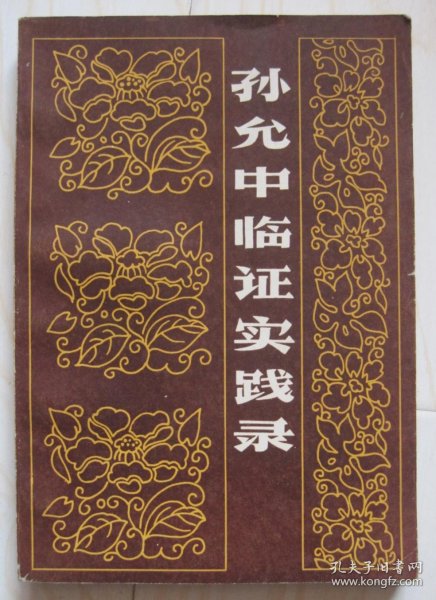 孙允中临证实践录
孔夫子旧书网
www.kongfz.com